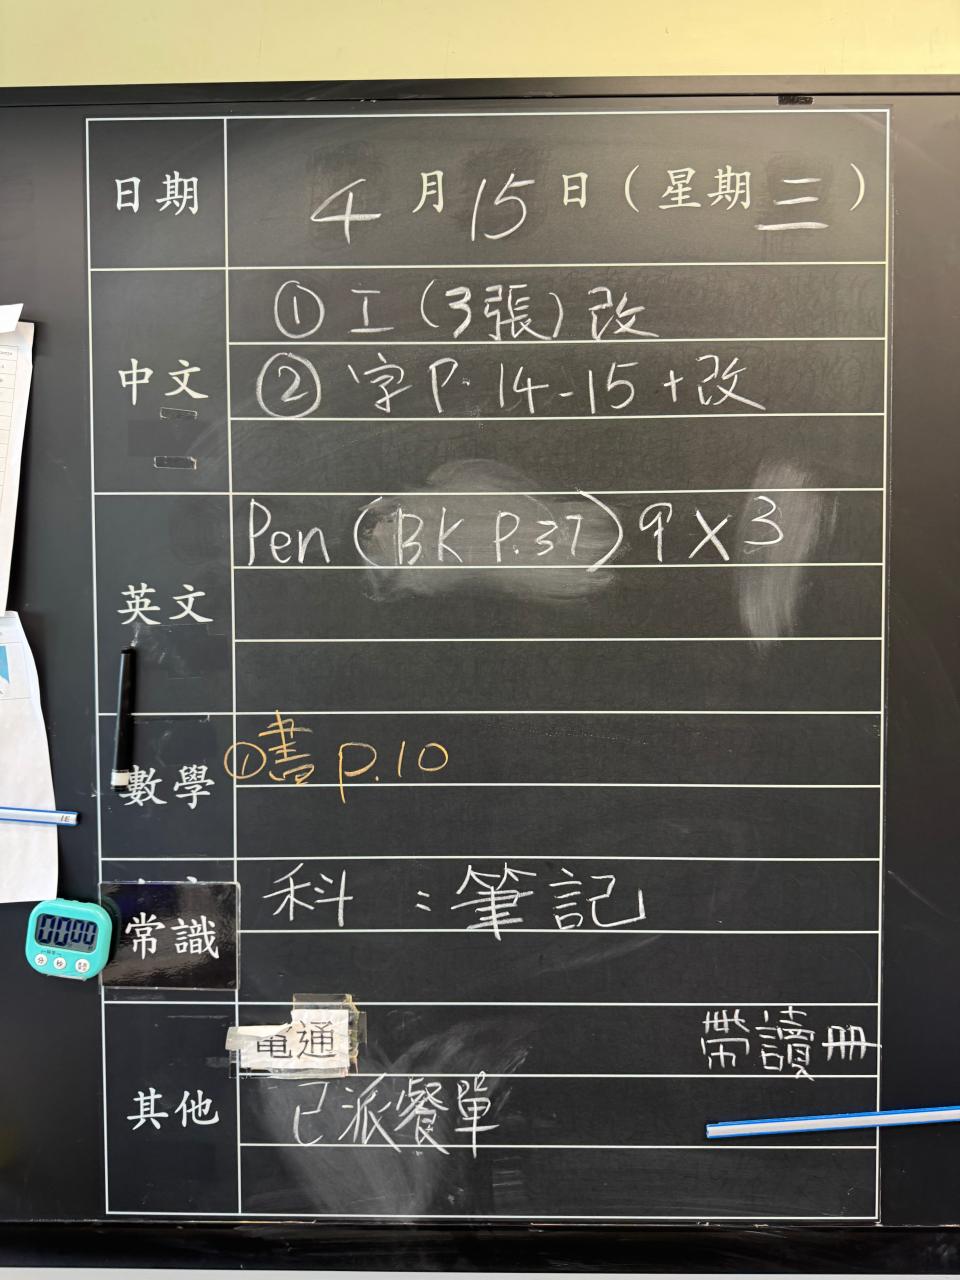 日期 4月15日(星期三)
中文
①工(3張)改
②字P.14-15+改
英文
Pen (BK P.37) 9×3
數學
①書 p.10
常識
科:筆記
其他
電通
帶讀冊
已派餐單
00:00
分 秒
1E